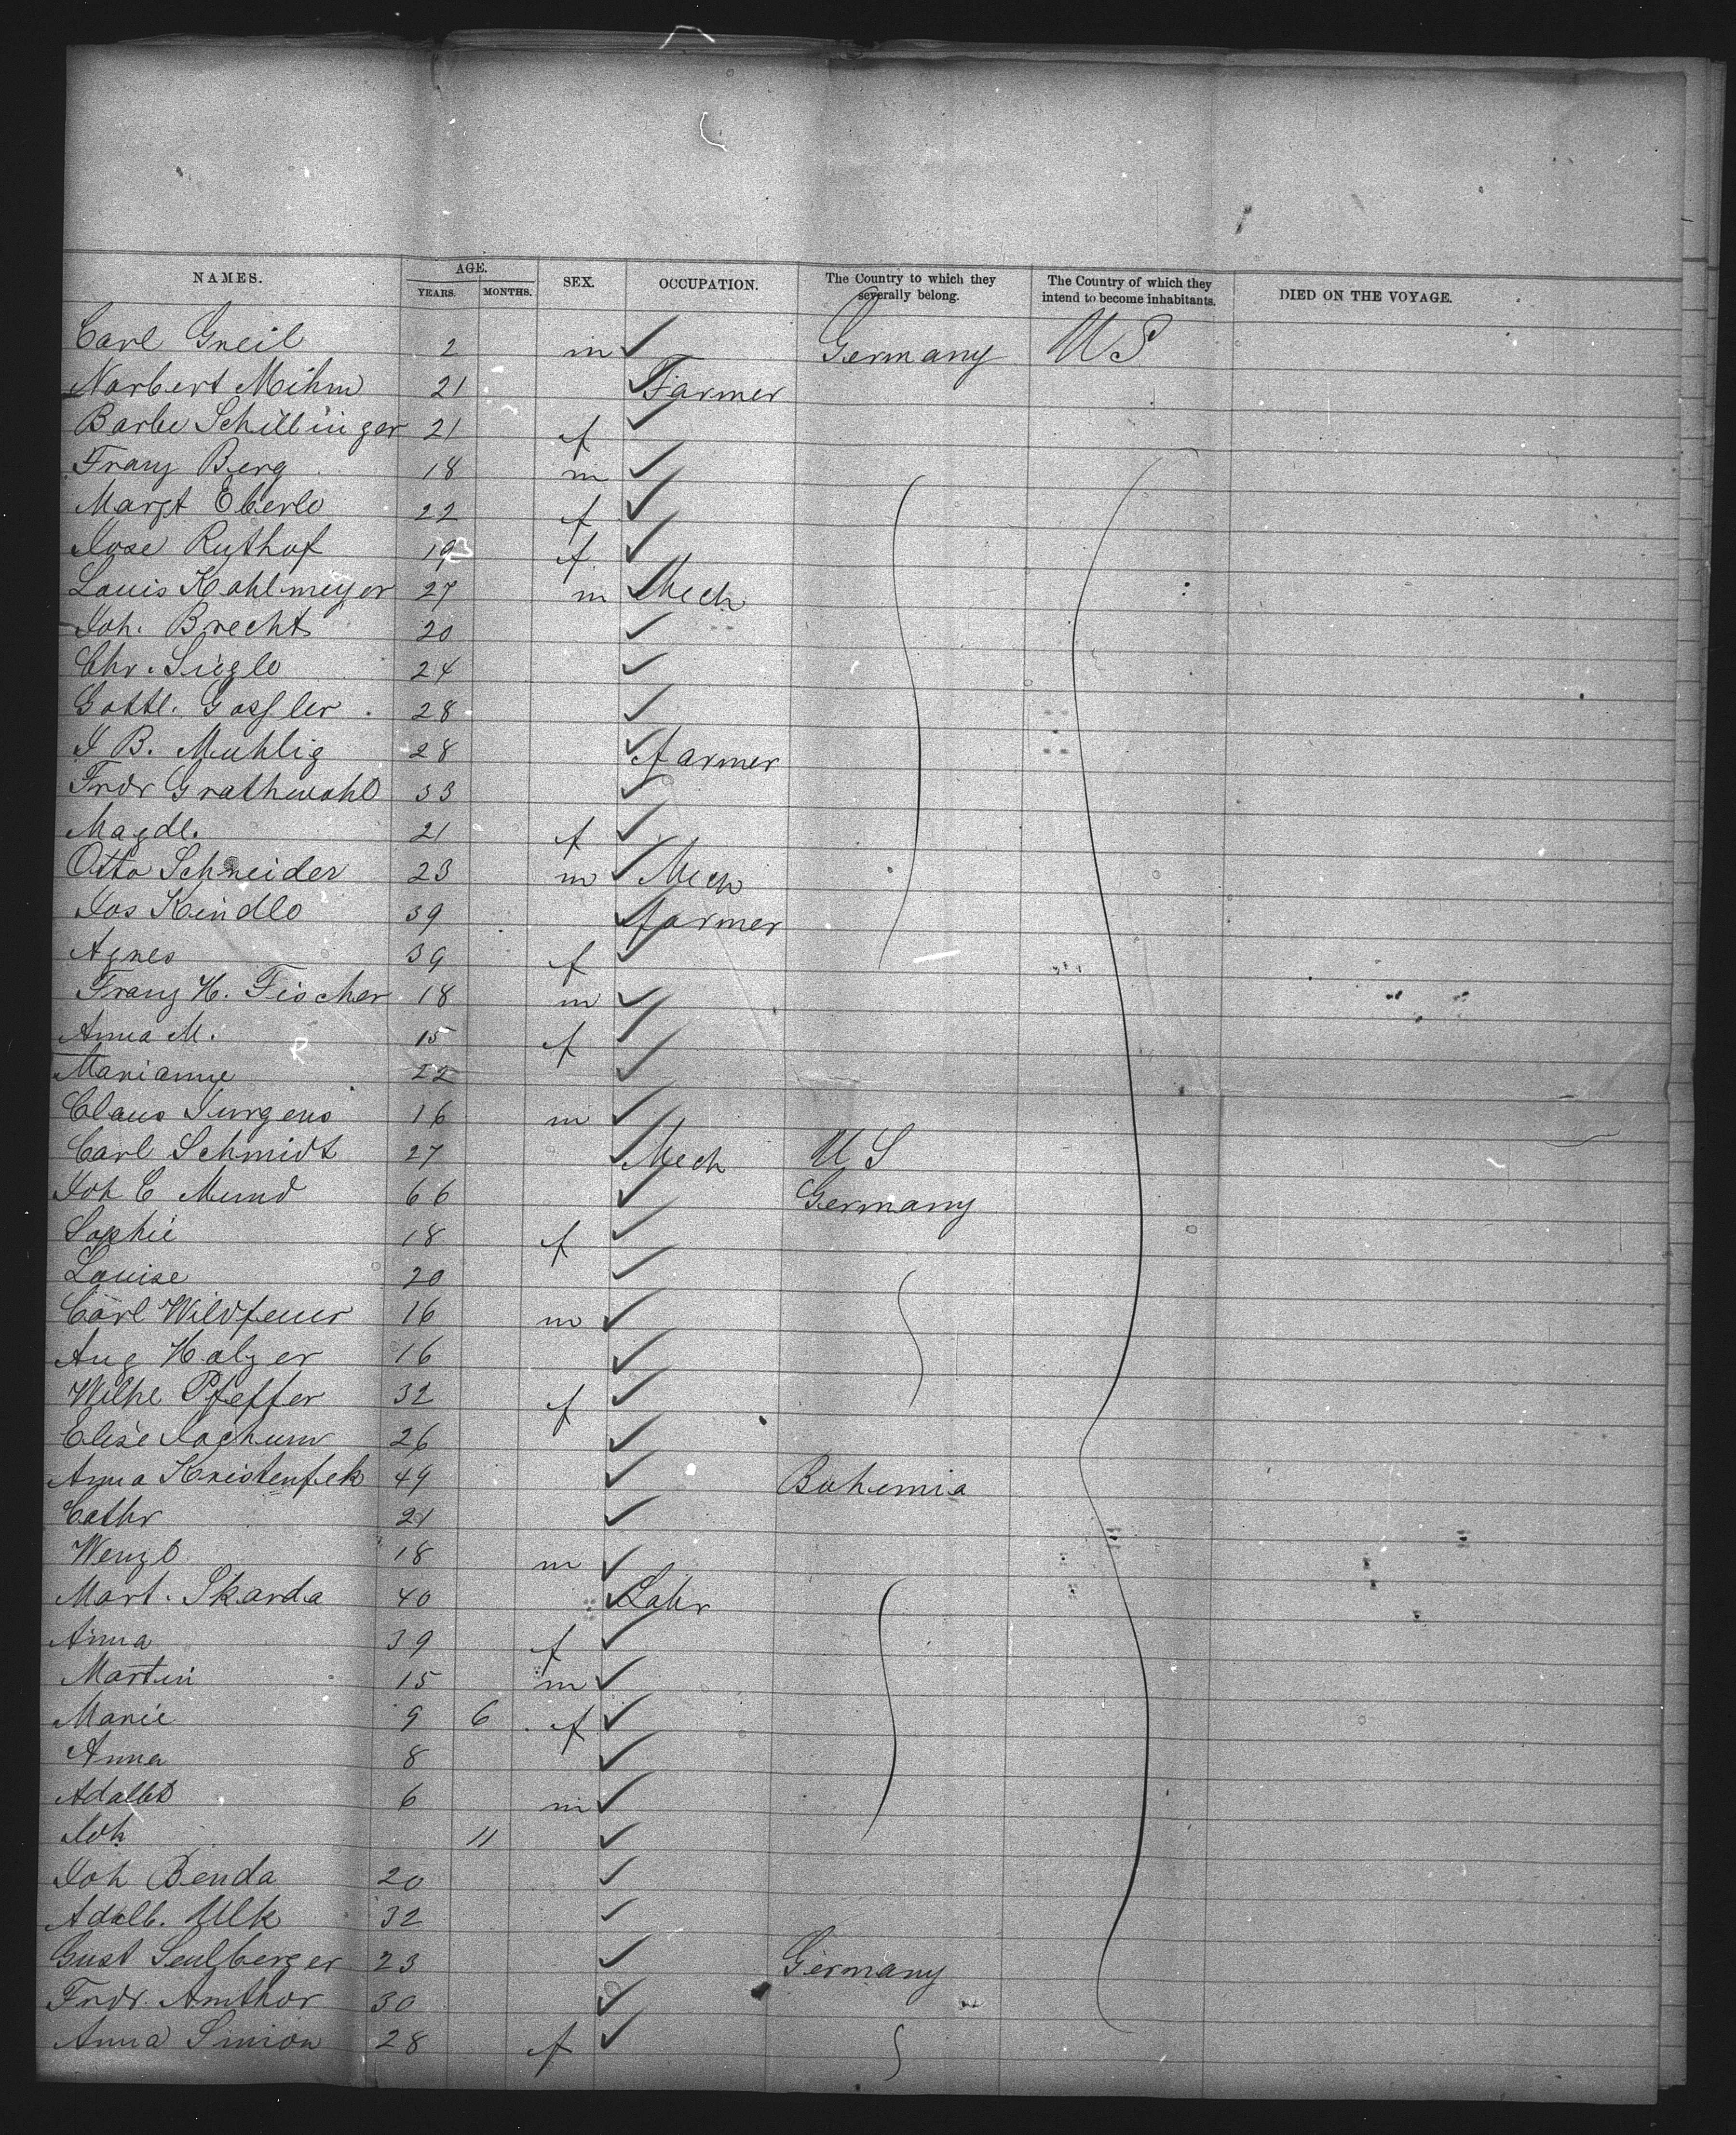 NAMES. AGE. SEX. OCCUPATION. The Country to which they severally belong. The Country of which they intend to become inhabitants. DIED ON THE VOYAGE.
YEARS. MONTHS.
Carl Greil 2 m Germany U S
Norbert Mihm 21 Farmer
Barbe Schillinger 21 f
Franz Berg 18 m
Margt Eberle 22 f
Jose Ruthof 19 f.
Louis Kohlmeyer 27 m Mech
Joh. Brecht 20
Chr. Siegle 24
Gottl. Gossler 28
J B. Muhlig 28 farmer
Frdr Grathwohl 33
Magdl. 21 f
Otto Schneider 23 m Mech
Jos Kindle 39 farmer
Agnes 39 f
Franz H. Fischer 18 m
Anna M. 15 f
Marianne 22
Claus Jurgens 16 m
Carl Schmidt 27 Mech U S
Joh C Mund 66 Germany
Sophie 18 f
Louise 20
Carl Wildfeuer 16 m
Aug Holzer 16
Wilhe Pfeffer 32 f
Elise Jochum 26
Anna 49 Bohemia
Cathr 21
Wenzl 18 m
Mart. Skarda 40 Labr
Anna 39 f
Martin 15 m
Marie 9 6 f
Anna 8
Adalbt 6 m
Joh 11
Joh Benda 20
Adalb. Ulk 32
Gust Seulberger 23 Germany
Frdr. Amthor 30
Anna Simon 28 f